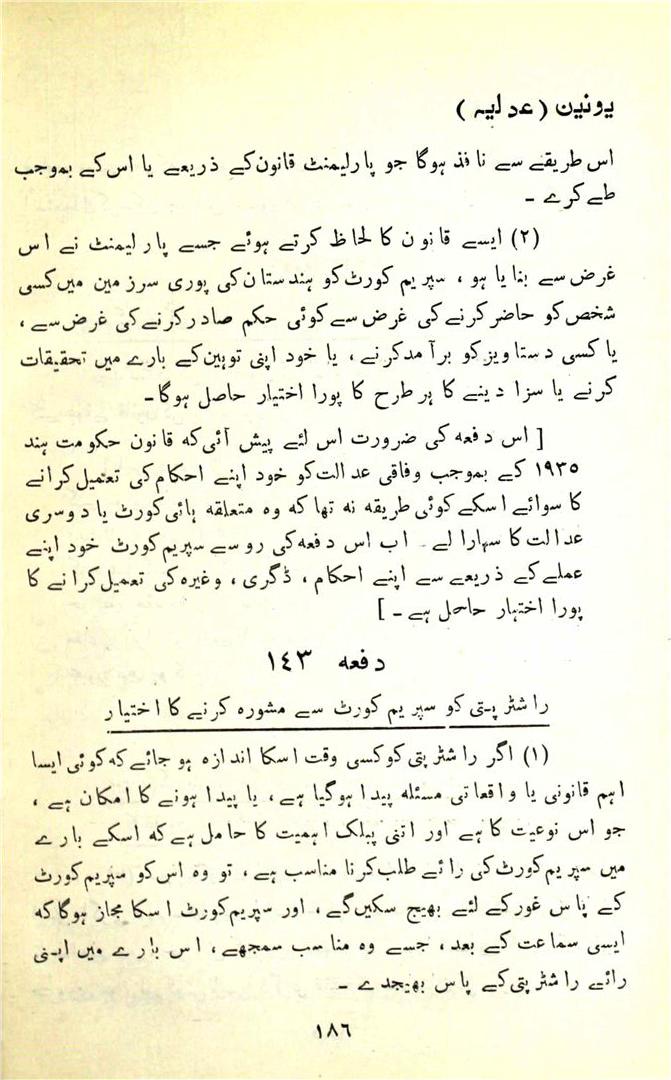 یونین (عدلیہ)
اس طریقے سے نافذ ہوگا جو پارلیمنٹ قانون کے ذریعے یا اس کے بموجب
طے کرے ۔
(۲) ایسے قانون کا لحاظ کرتے ہوئے جسے پارلیمنٹ نے اس
غرض سے بنایا ہو ، سپریم کورٹ کو ہندستان کی پوری سرزمین میں کسی
شخص کو حاضر کرنے کی غرض سے کوئی حکم صادر کرنے کی غرض سے ،
یا کسی دستاویز کو برآمد کرنے ، یا خود اپنی توہین کے بارے میں تحقیقات
کرنے یا سزا دینے کا ہر طرح کا پورا اختیار حاصل ہوگا ۔
[ اس دفعہ کی ضرورت اس لئے پیش آئی کہ قانون حکومت ہند
۱۹۳۵ کے بموجب وفاقی عدالت کو خود اپنے احکام کی تعمیل کرانے
کا سوائے اسکے کوئی طریقہ نہ تھا کہ وہ متعلقہ ہائی کورٹ یا دوسری
عدالت کا سہارا لے ۔ اب اس دفعہ کی رو سے سپریم کورٹ خود اپنے
عملے کے ذریعے سے اپنے احکام ، ڈگری ، وغیرہ کی تعمیل کرانے کا
پورا اختہار حاصل ہے ۔ ]
دفعہ ۱۴۳
راشٹر پتی کو سپریم کورٹ سے مشورہ کرنے کا اختیار
(۱) اگر راشٹر پتی کو کسی وقت اسکا اندازہ ہو جائے کہ کوئی ایسا
اہم قانونی یا واقعاتی مسئلہ پیدا ہوگیا ہے ، یا پیدا ہونے کا امکان ہے ،
جو اس نوعیت کا ہے اور اتنی پبلک اہمیت کا حامل ہے کہ اسکے بارے
میں سپریم کورٹ کی رائے طلب کرنا مناسب ہے ، تو وہ اس کو سپریم کورٹ
کے پاس غور کے لئے بھیج سکیں گے ، اور سپریم کورٹ اسکا مجاز ہوگا کہ
ایسی سماعت کے بعد ، جسے وہ مناسب سمجھے ، اس بارے میں اپنی
رائے راشٹر پتی کے پاس بھیجدے ۔
۱۸۶